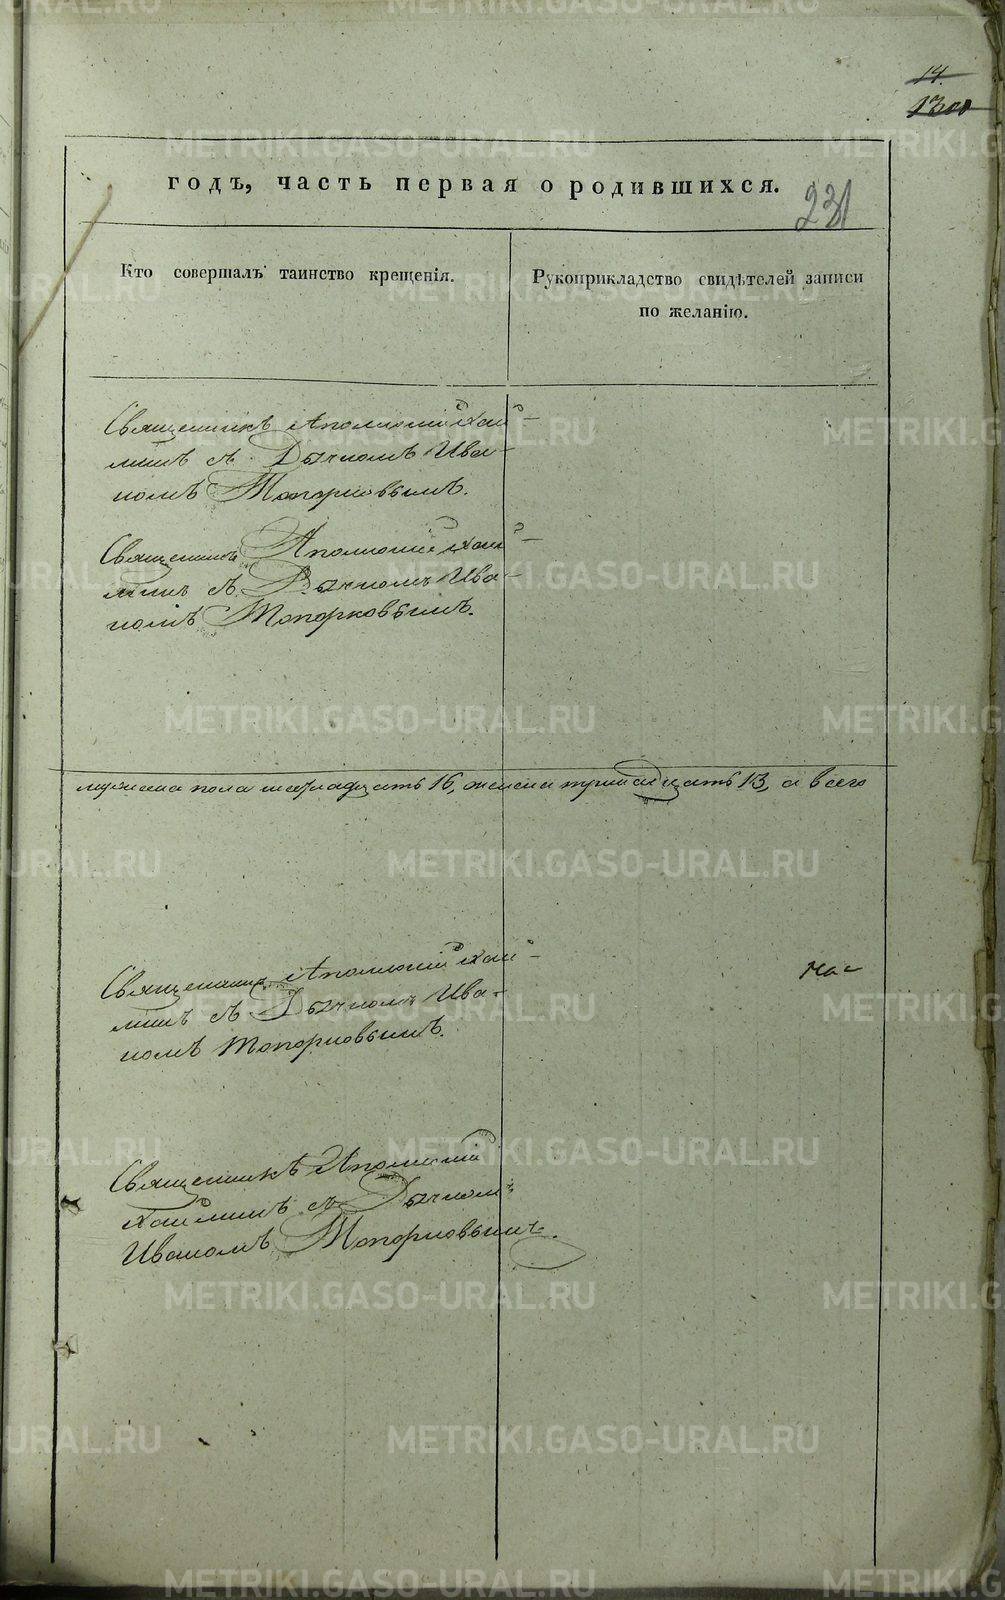 14.
1300
годъ, часть первая о родившихся.
231
Кто совершалъ таинство крещенія.
Рукоприкладство свидѣтелей записи
по желанію.
Священникъ Аполлоній Хай-
линъ съ Дьячкомъ Ива-
номъ Топорковымъ.
Священникъ Аполлоній Хай-
линъ съ Дьячкомъ Ива-
номъ Топорковымъ.
мужеска пола шестнадцать 16, женска тринадцать 13, а всего
Священникъ Аполлоній Хай-
линъ съ Дьячкомъ Ива-
номъ Топорковымъ.
Священникъ Аполлоній
Хайлинъ съ Дьячкомъ
Иваномъ Топорковымъ.
METRIKI.GASO-URAL.RU